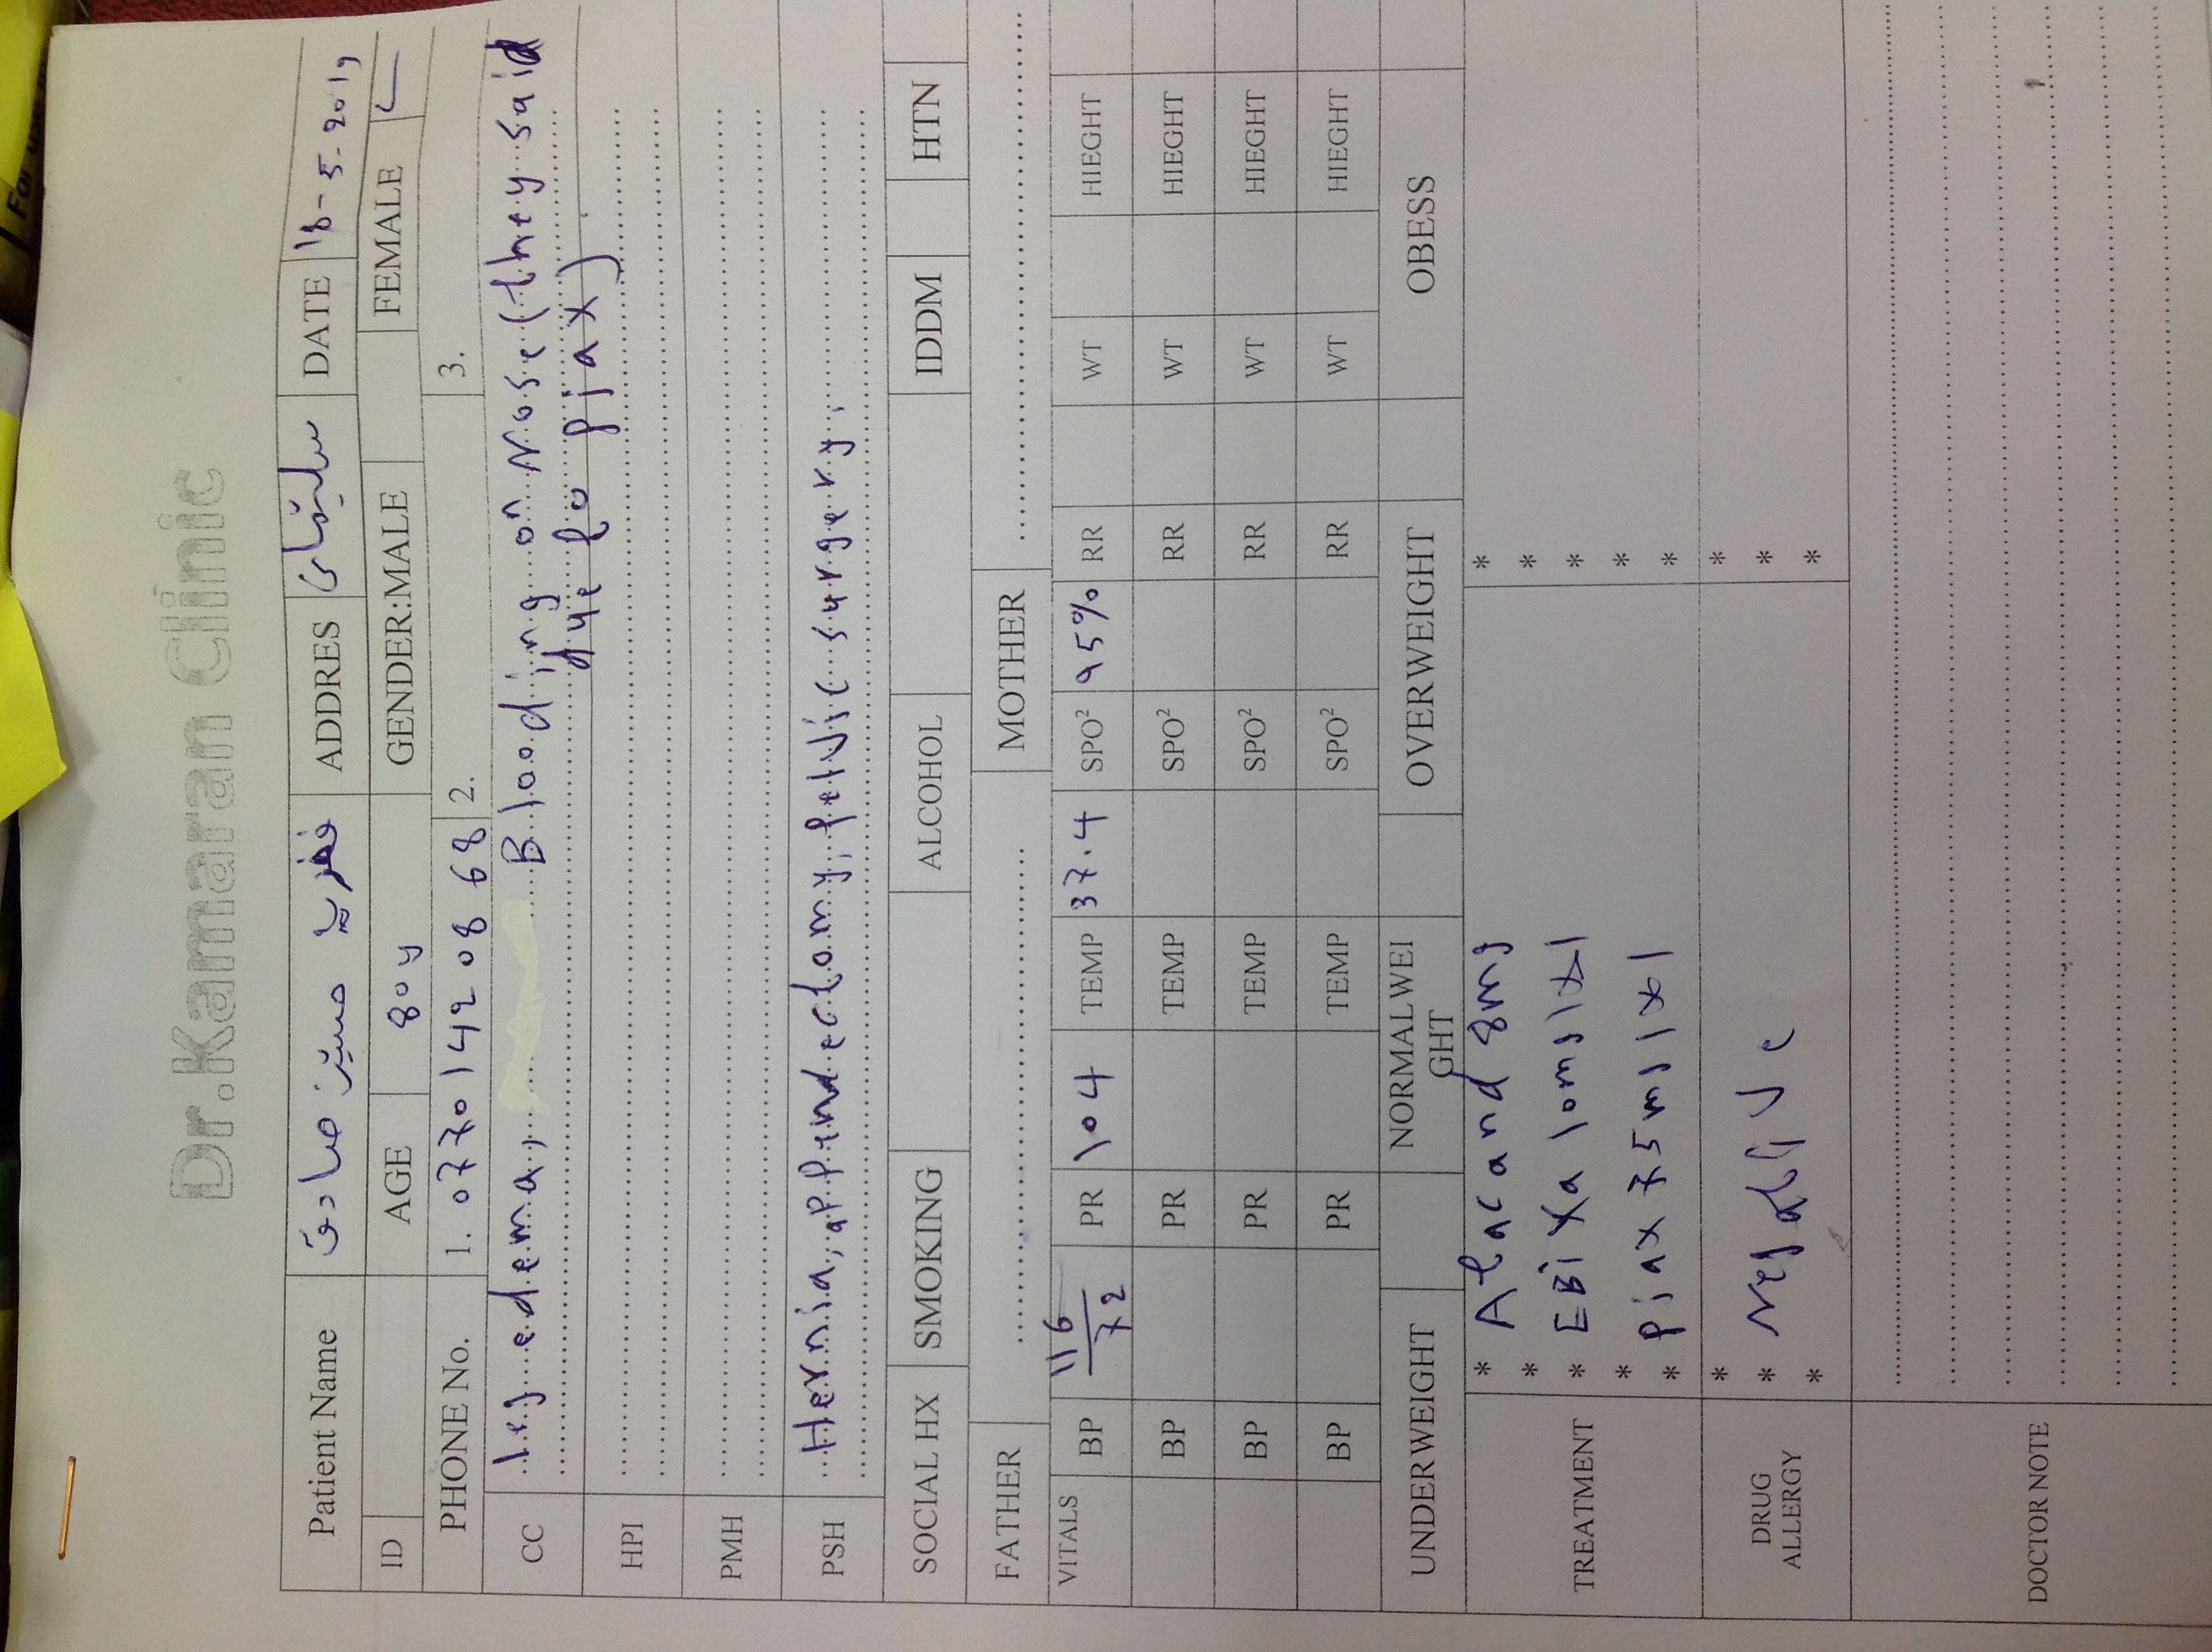 Dr.Kamaran Clinic
Patient Name حسین صادق ADDRES سلیمانی DATE 18-5-2019
ID AGE 80y GENDER:MALE FEMALE
PHONE No. 1. 0770 142 08 68 2. 3.
CC leg edema, Blooding on Nose (they said
due to piax)
HPI
PMH
PSH Hernia, appendectomy, pelvic surgery.
SOCIAL HX SMOKING ALCOHOL IDDM HTN
FATHER MOTHER
VITALS BP 116/72 PR 104 TEMP 37.4 SPO² 95% RR WT HIEGHT
BP PR TEMP SPO² RR WT HIEGHT
BP PR TEMP SPO² RR WT HIEGHT
BP PR TEMP SPO² RR WT HIEGHT
UNDERWEIGHT NORMALWEI
GHT OVERWEIGHT OBESS
TREATMENT * Atacand 8mg *
* *
* EBiXa 10mg 1x1 *
* *
* piax 75mg 1x1 *
DRUG
ALLERGY * *
* negative *
* *
DOCTOR NOTE